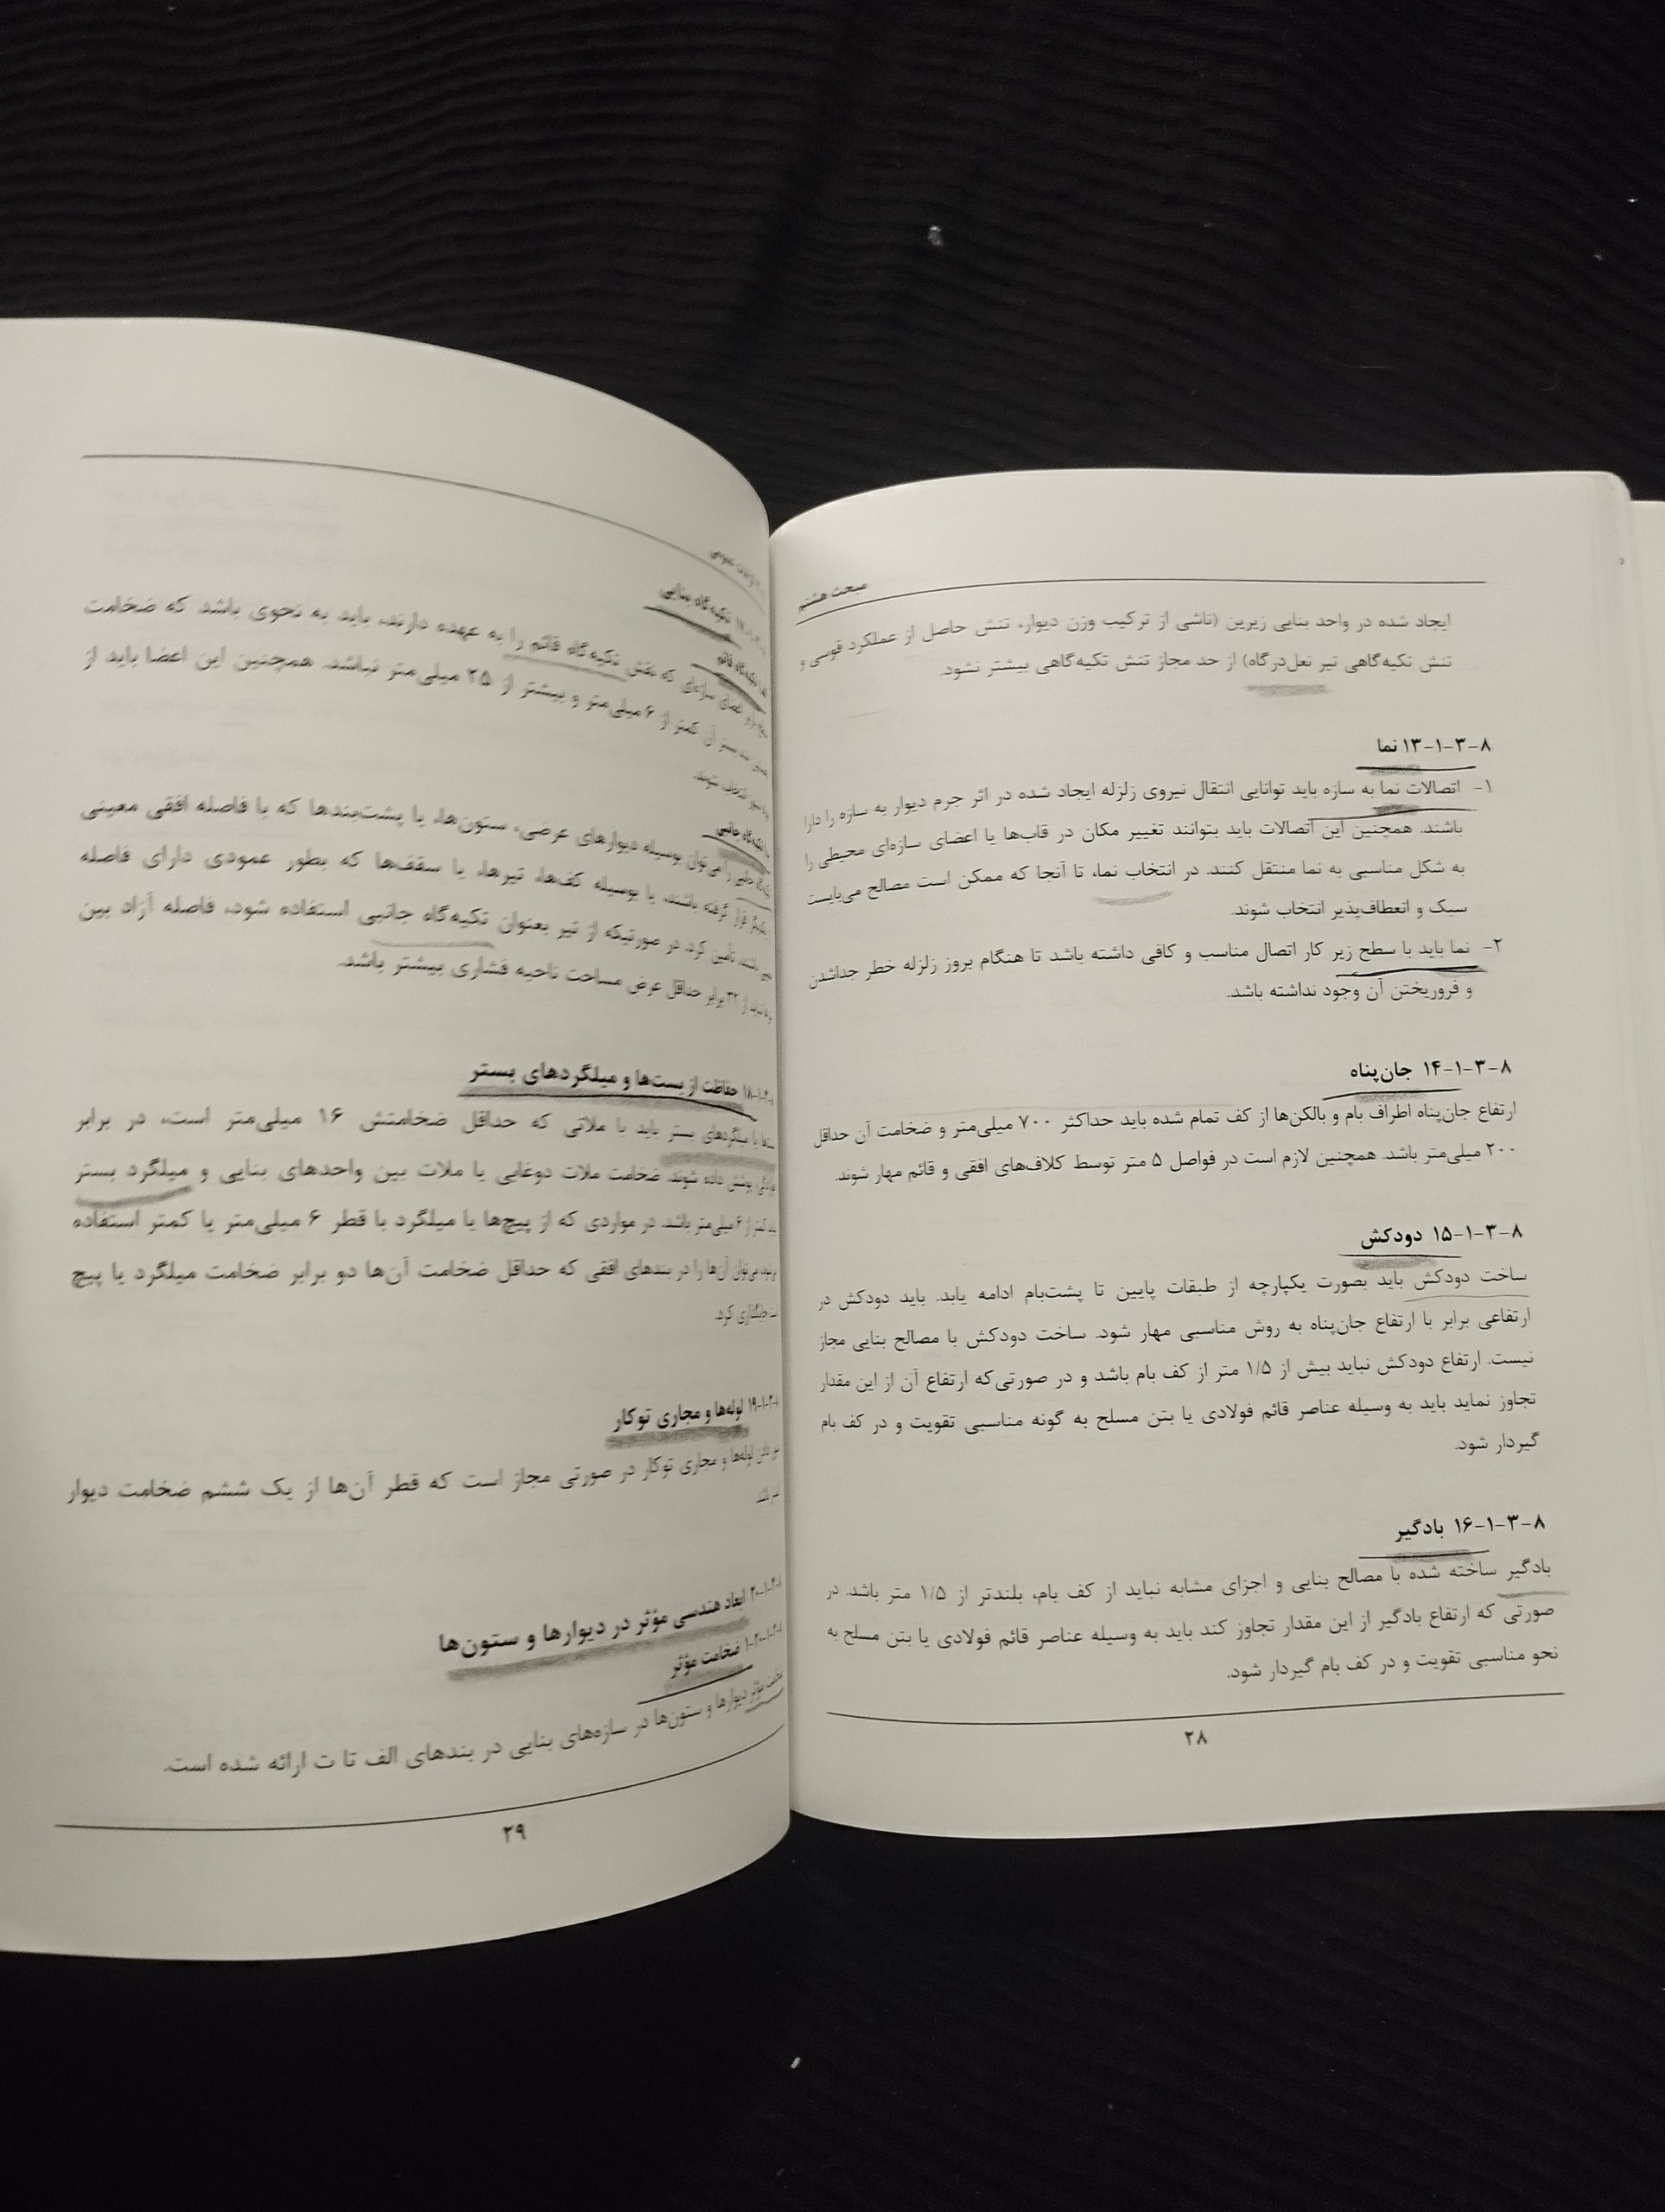 مبحث هشتم
ایجاد شده در واحد بنایی زیرین (ناشی از ترکیب وزن دیوار، تنش حاصل از عملکرد قوسی و
تنش تکیه‌گاهی تیر نعل‌درگاه) از حد مجاز تنش تکیه‌گاهی بیشتر نشود.
۸-۳-۱-۱۳ نما
۱- اتصالات نما به سازه باید توانایی انتقال نیروی زلزله ایجاد شده در اثر جرم دیوار به سازه را دارا
باشند. همچنین این اتصالات باید بتوانند تغییر مکان در قاب‌ها یا اعضای سازه‌ای محیطی را
به شکل مناسبی به نما منتقل کنند. در انتخاب نما، تا آنجا که ممکن است مصالح می‌بایست
سبک و انعطاف‌پذیر انتخاب شوند.
۲- نما باید با سطح زیر کار اتصال مناسب و کافی داشته باشد تا هنگام بروز زلزله خطر جداشدن
و فروریختن آن وجود نداشته باشد.
۸-۳-۱-۱۴ جان‌پناه
ارتفاع جان‌پناه اطراف بام و بالکن‌ها از کف تمام شده باید حداکثر ۷۰۰ میلی‌متر و ضخامت آن حداقل
۲۰۰ میلی‌متر باشد. همچنین لازم است در فواصل ۵ متر توسط کلاف‌های افقی و قائم مهار شوند.
۸-۳-۱-۱۵ دودکش
ساخت دودکش باید بصورت یکپارچه از طبقات پایین تا پشت‌بام ادامه یابد. باید دودکش در
ارتفاعی برابر با ارتفاع جان‌پناه به روش مناسبی مهار شود. ساخت دودکش با مصالح بنایی مجاز
نیست. ارتفاع دودکش نباید بیش از ۱/۵ متر از کف بام باشد و در صورتی‌که ارتفاع آن از این مقدار
تجاوز نماید باید به وسیله عناصر قائم فولادی یا بتن مسلح به گونه مناسبی تقویت و در کف بام
گیردار شود.
۸-۳-۱-۱۶ بادگیر
بادگیر ساخته شده با مصالح بنایی و اجزای مشابه نباید از کف بام، بلندتر از ۱/۵ متر باشد. در
صورتی که ارتفاع بادگیر از این مقدار تجاوز کند باید به وسیله عناصر قائم فولادی یا بتن مسلح به
نحو مناسبی تقویت و در کف بام گیردار شود.
۲۸
تکیه‌گاه بنایی
تکیه‌گاه قائم
اعضای سازه‌ای که نقش تکیه‌گاه قائم را به عهده دارند، باید به نحوی باشد که ضخامت
بستر آن کمتر از ۶ میلی‌متر و بیشتر از ۲۵ میلی‌متر نباشد. همچنین این اعضا باید از
شوند.
تکیه‌گاه جانبی
جانبی را می‌توان بوسیله دیوارهای عرضی، ستون‌ها، یا پشت‌بندها که با فاصله افقی معینی
قرار گرفته باشند، یا بوسیله کف‌ها، تیرها، یا سقف‌ها که بطور عمودی دارای فاصله
باشند، تأمین کرد. در صورتیکه از تیر بعنوان تکیه‌گاه جانبی استفاده شود، فاصله آزاد بین
نباید از ۳۲ برابر حداقل عرض مساحت ناحیه فشاری بیشتر باشد.
حفاظت از بست‌ها و میلگردهای بستر
بست‌ها یا میلگردهای بستر باید با ملاتی که حداقل ضخامتش ۱۶ میلی‌متر است، در برابر
پوشش داده شوند. ضخامت ملات دوغابی یا ملات بین واحدهای بنایی و میلگرد بستر
نباید کمتر از ۶ میلی‌متر باشد. در مواردی که از پیچ‌ها یا میلگرد با قطر ۶ میلی‌متر یا کمتر استفاده
می‌شود، می‌توان آن‌ها را در بندهای افقی که حداقل ضخامت آن‌ها دو برابر ضخامت میلگرد یا پیچ
است جایگذاری کرد.
لوله‌ها و مجاری توکار
لوله‌ها و مجاری توکار در صورتی مجاز است که قطر آن‌ها از یک ششم ضخامت دیوار
کمتر باشد.
ابعاد هندسی مؤثر در دیوارها و ستون‌ها
ضخامت مؤثر
ضخامت مؤثر دیوارها و ستون‌ها در سازه‌های بنایی در بندهای الف تا ت ارائه شده است.
۲۹